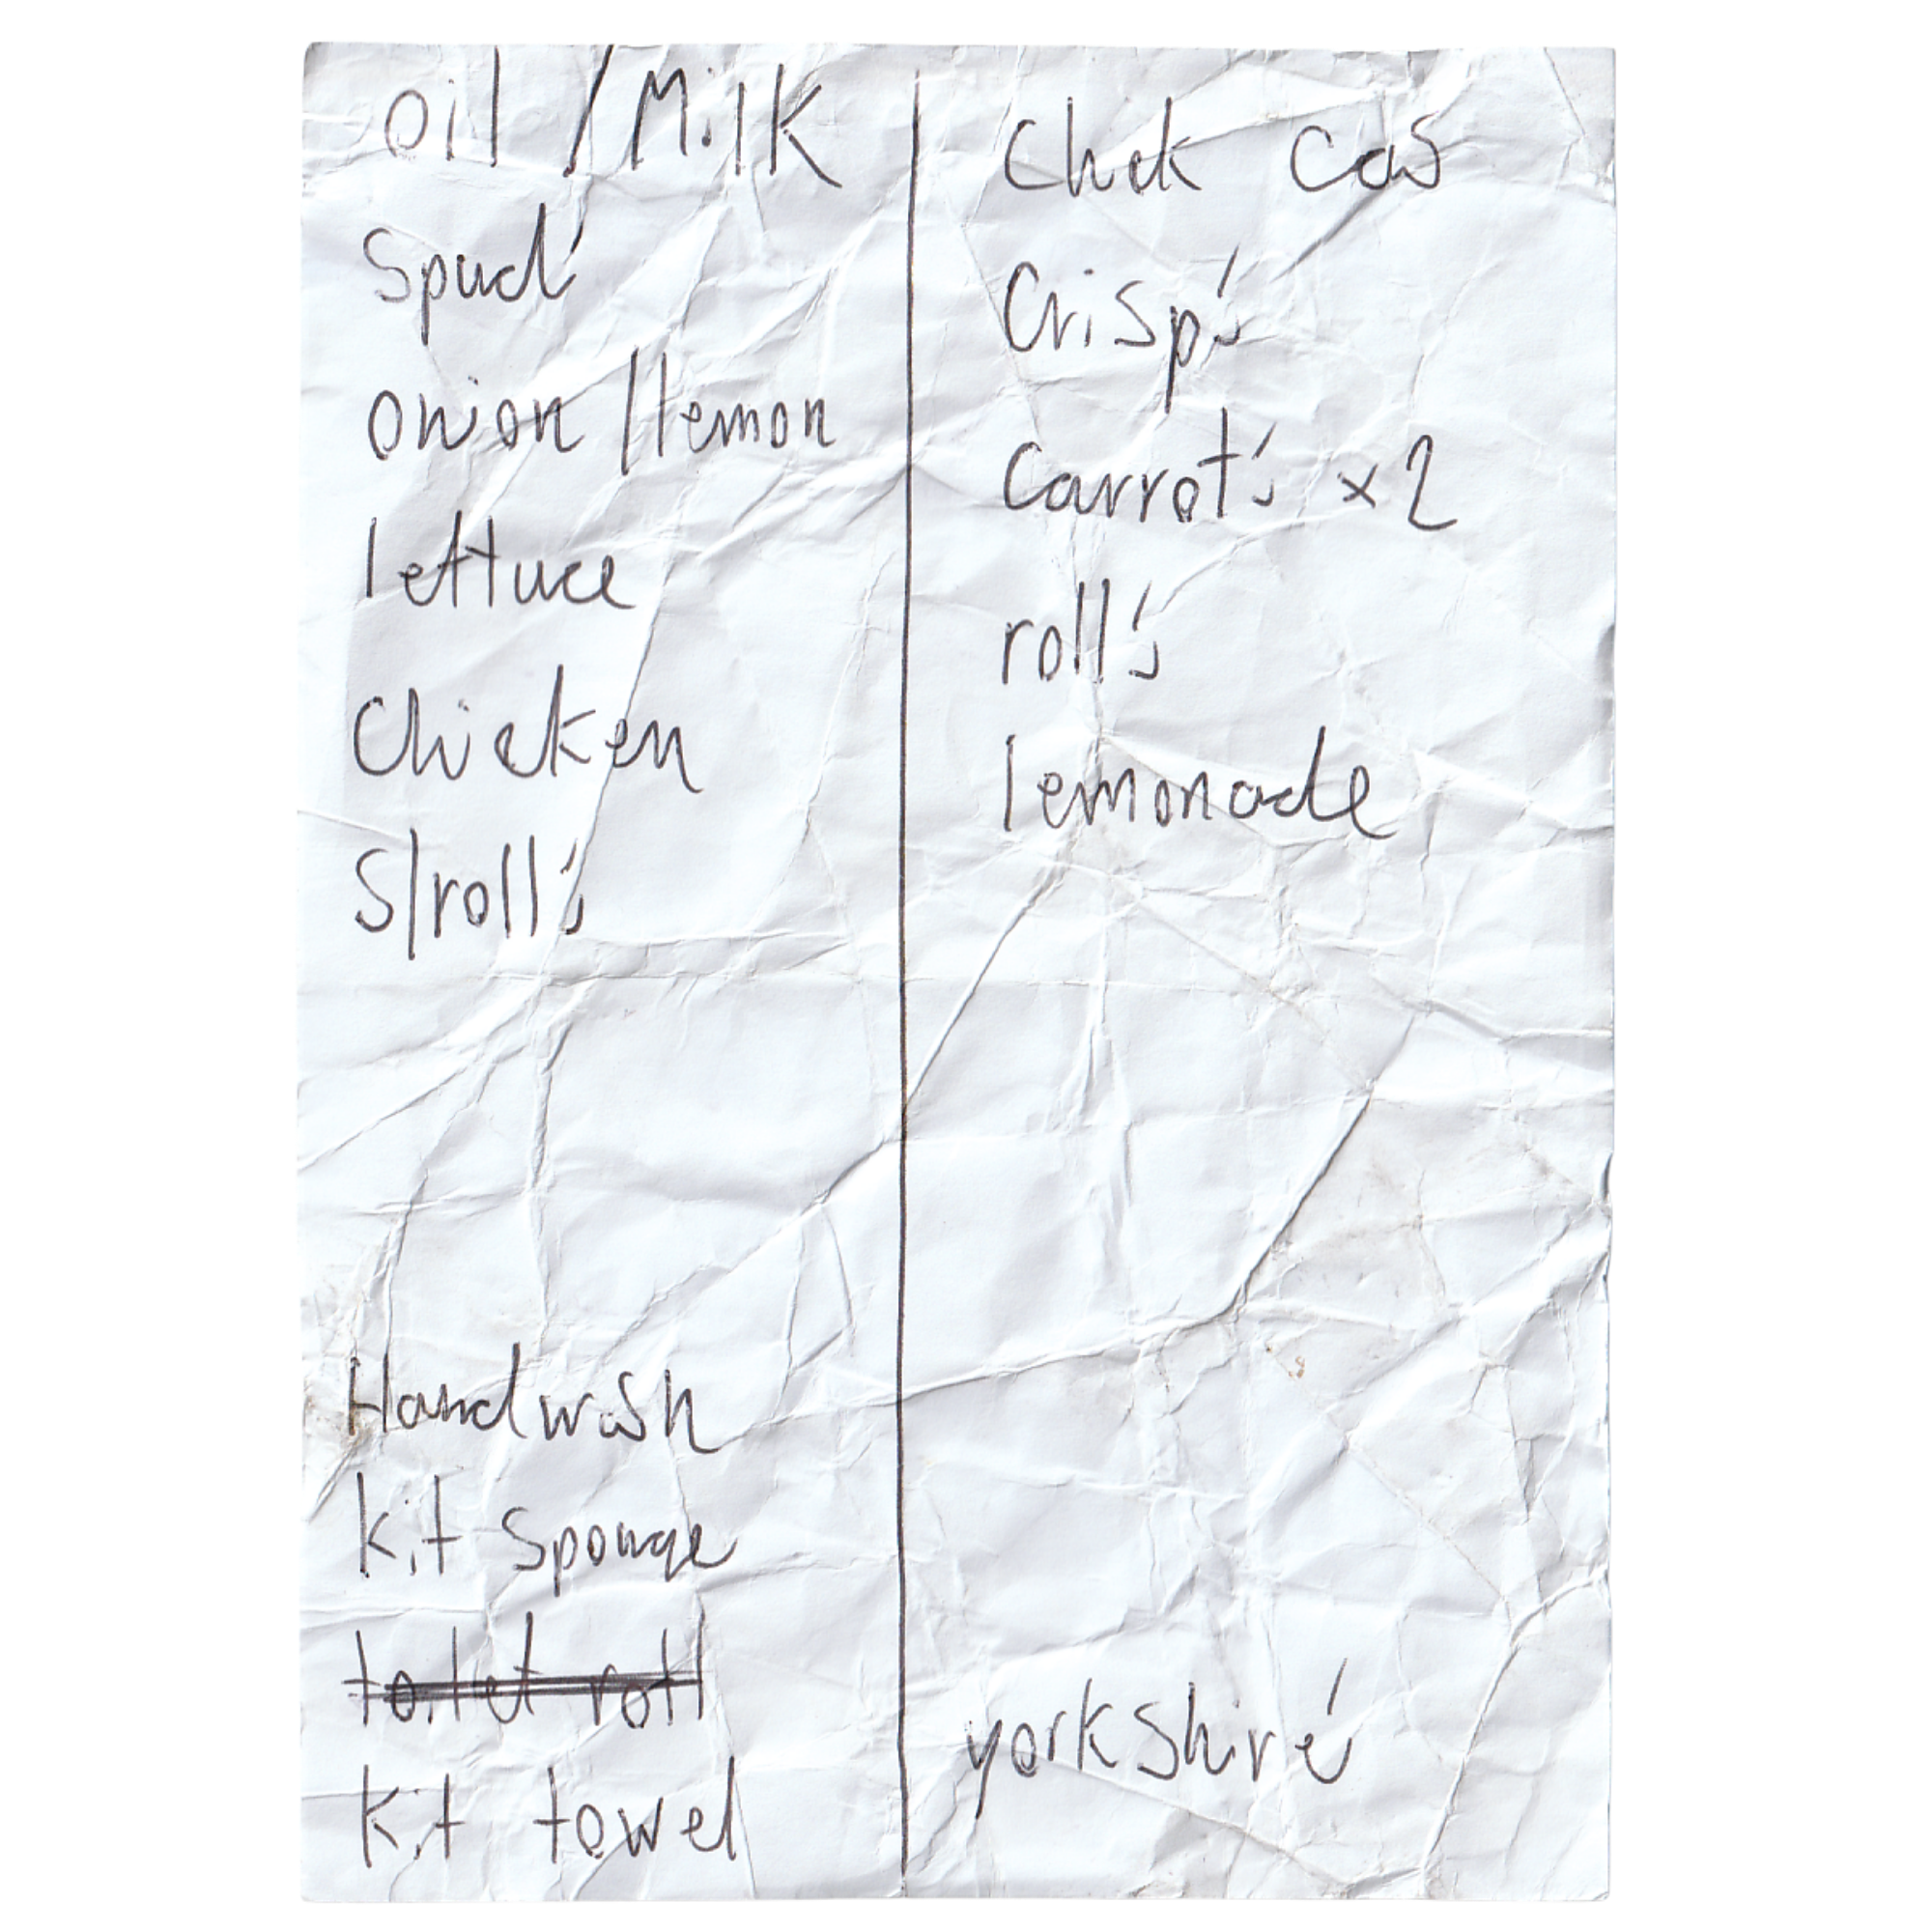 oil / Milk
Spud's
onion / lemon
lettuce
Chicken
S/roll's
Handwash
Kit Sponge
toilet roll
Kit towel
Crisp's
Carrot's x2
roll's
lemonade
yorkshire's